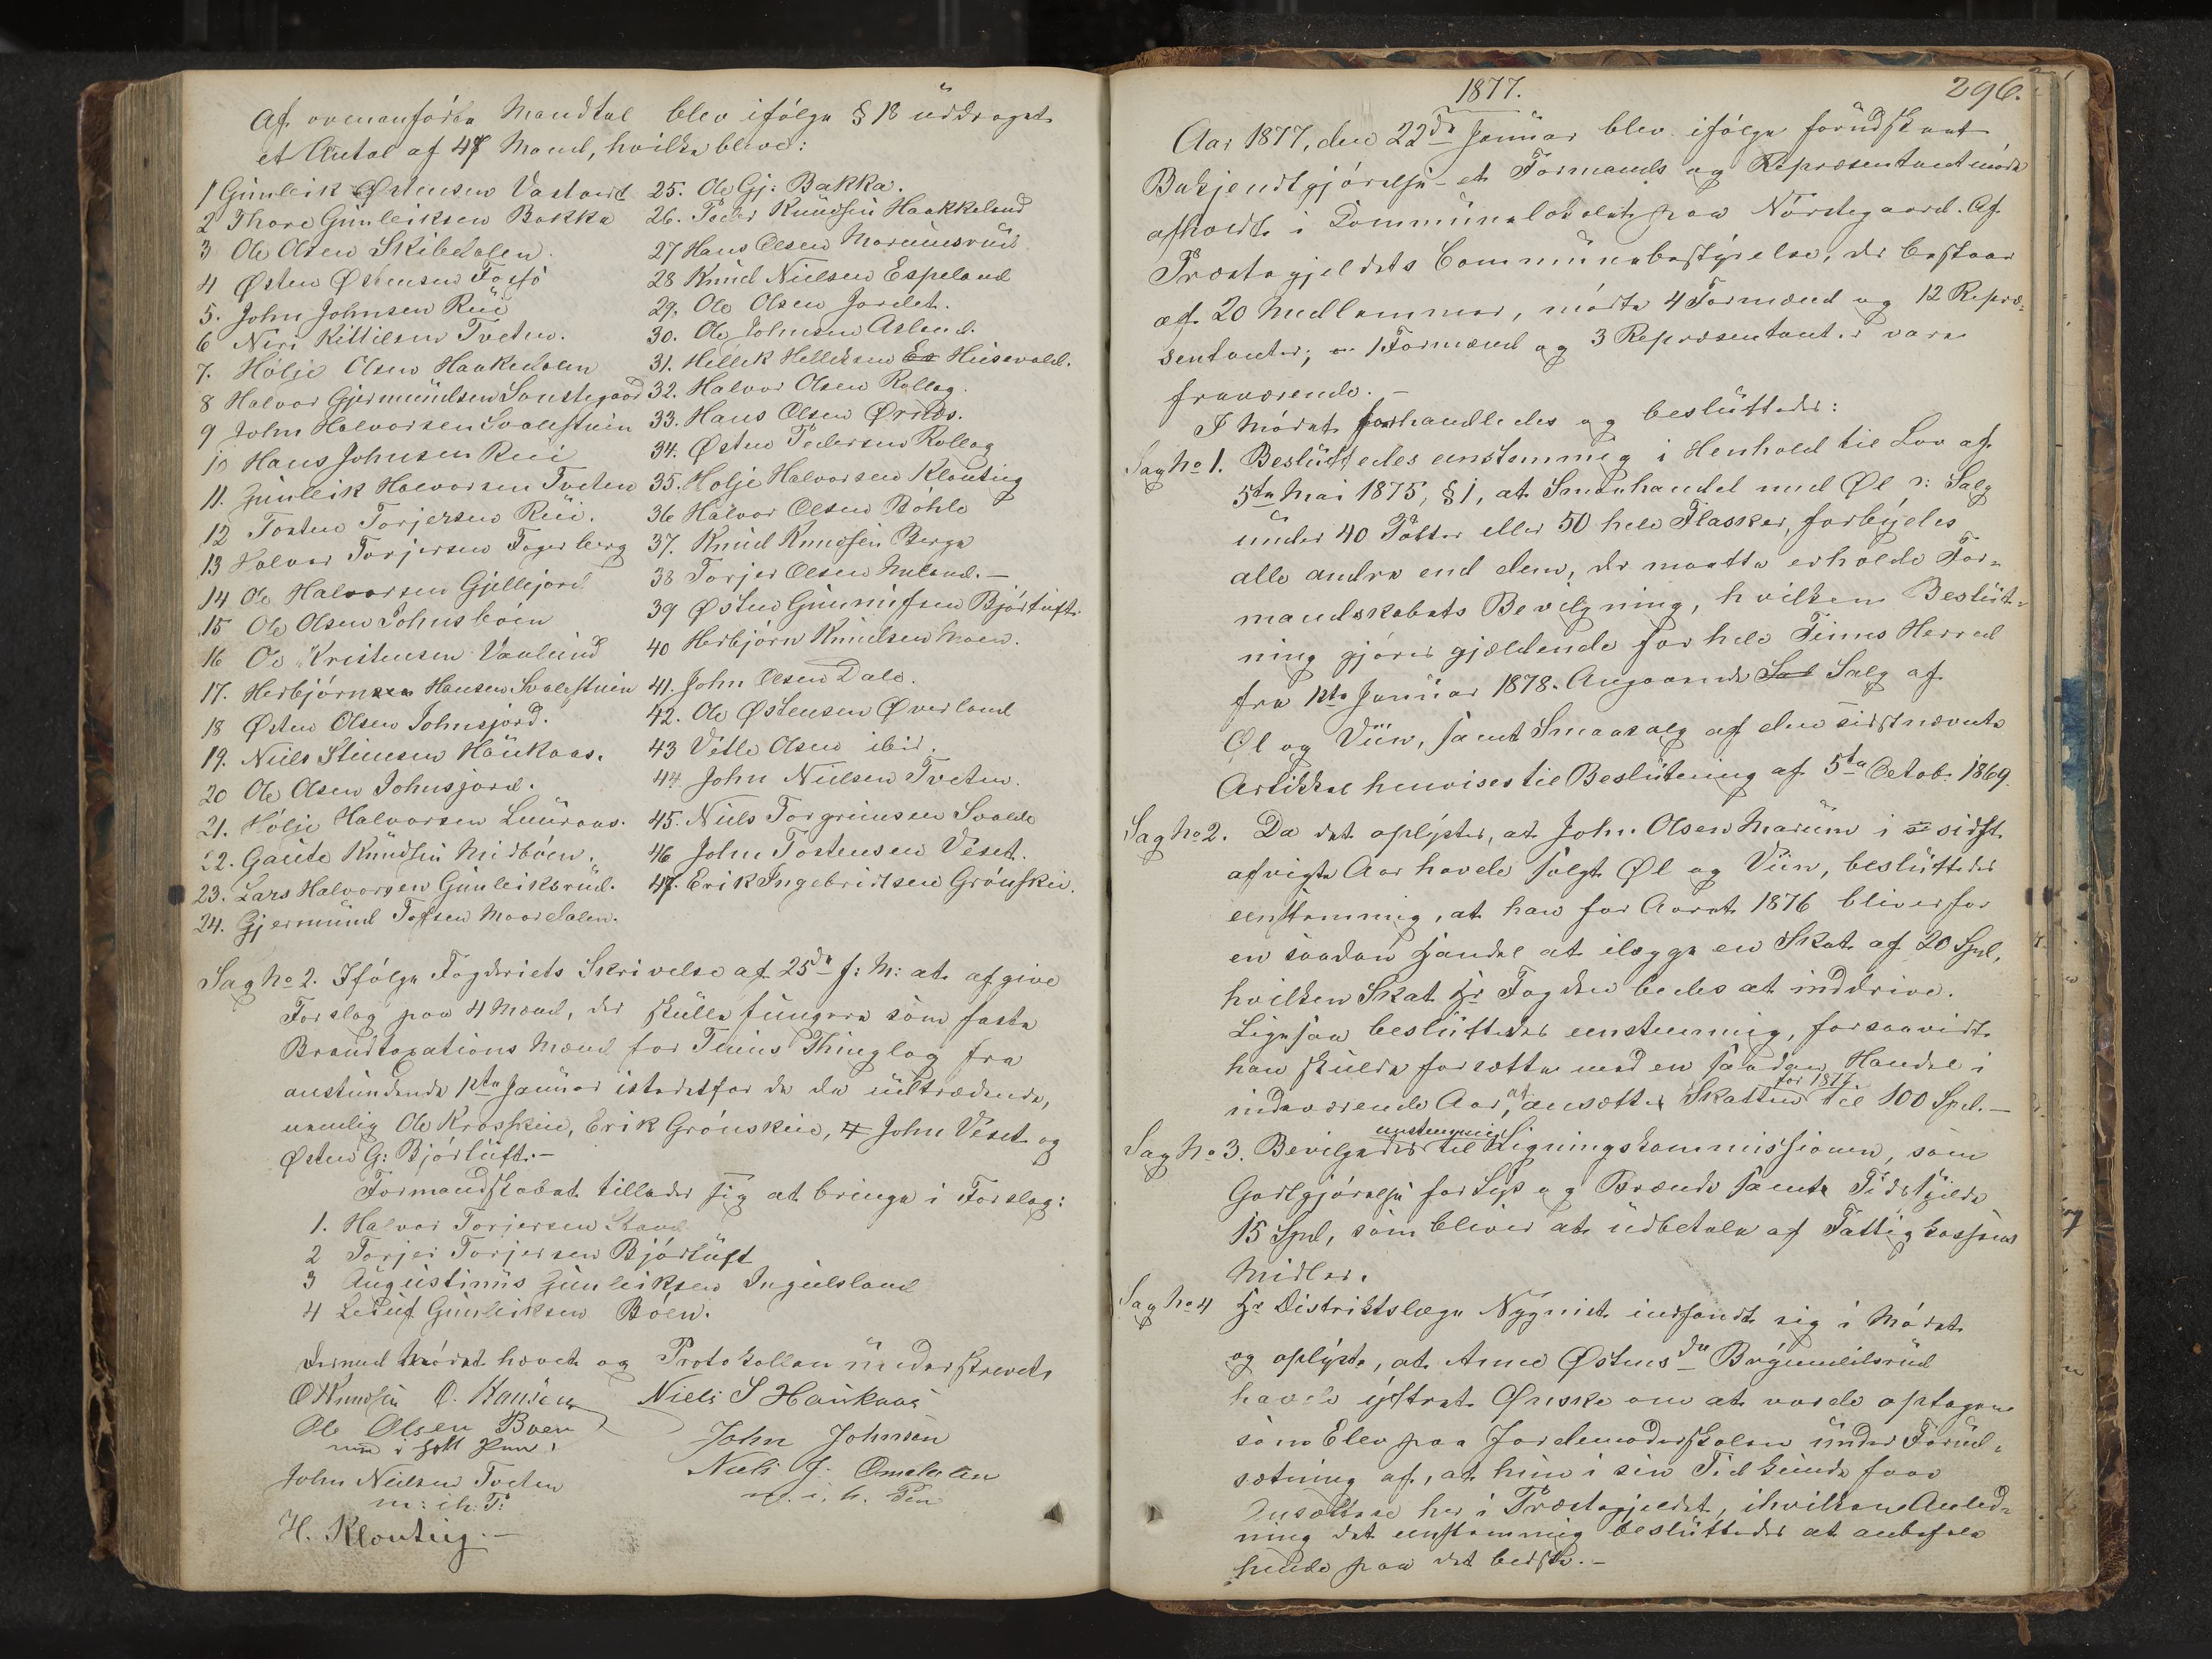 Af ovenanførte Mandtal blev ifølge § 18 uddraget
et Antal af 47 Mænd, hvilke bleve:
1 Gunleik Østensen Vastveit
2 Thore Gunleiksen Bakka
3 Ole Olsen Skibedalen.
4 Østen Østensen Fossø
5. John Johnsen Rui
6 Niri Kittilsen Tveten.
7. Hølje Olsen Haakedalen
8 Halvor Gjermundsen Sønstegaard
9 John Halvorsen Svalestuin
10 Hans Johnsen Rui
11. Gunleik Halvorsen Tveten
12 Tosten Torjersen Rui.
13 Halvor Torjersen Fagerberg
14 Ole Halvorsen Gjellejord
15 Ole Olsen Johnsbøen
16 Ole Kristensen Vaalund
17. Herbjørn Hansen Svalestuin
18 Østen Olsen Johnsjord.
19. Niels Stiensen Haukaas.
20 Ole Olsen Johnsjord.
21. Hølje Halvorsen Luuraas.
22. Gaute Knudsen Midbøen.
23. Lars Halvorsen Gunleiksrud.
24. Gjermund Tofsen Maardalen.
25. Ole Gj: Bakka.
26. Peder Knudsen Haakkeland
27 Hans Olsen Marumsrud
28 Knud Nielsen Espeland
29. Ole Olsen Jordet.
30. Ole Johnsen Aslend.
31. Hellek Helleksen Es Husevold.
32. Halvor Olsen Rollag.
33. Hans Olsen Ørnæs.
34. Østen Pedersen Rollag
35. Holje Halvorsen Klonteig
36 Halvor Olsen Bøhle
37. Knud Knudsen Berge
38 Torjer Olsen Mæland. –
39 Østen Gunnufsen Bjørtuft
40 Herbjørn Knudsen Moen.
41. John Olsen Dale.
42. Ole Østensen Øverland
43 Vetle Olsen ibid.
44. John Nielsen Tveten.
45. Niels Torgrimsen Svalde
46 John Tostensen Veset.
47. Erik Ingebrigtsen Grønskei.
Sag No 2. Ifølge Fogderiets Skrivelse af 25de f: M: at afgive
Forslag paa 4 Mænd, der skulle fungere som faste
Brandtaxations Mænd for Tinns Thinglag fra
anstundende 1ste Januar istedetfor de da udtrædende,
nemlig Ole Kroskeie, Erik Grønskeie, John Veset og
Østen G: Bjørtuft. –
Formandskabet tillader sig at bringe i Forslag:
1. Halvor Torjersen Skand
2 Torjer Torjersen Bjørtuft
3 Augustinus Gunleiksen Ingulsland
4 Leduf Gunleiksen Bøen.
Dermed Mødet hævet og Protokollen underskrevet
O Knudsen O. Hansen Niels S Haukaas
Ole Olsen Boen
med i holt Pen:
John Johnsen
John Neilsen Tveten
m: i h: P:
Niels J: Omdalen
m. i. h. Pen
H. Klonteig. –
1877. 296.
Aar 1877, den 22de Januar blev ifølge forudskeet
Bekjendtgjørelse – et Formands og Repræsentantmøde
afholdt i Communelokalet paa Nordegaard. Af
Præstegjeldets Communebestyrelse, der bestaar
af 20 Medlemmer, mødte 4 Formænd og 12 Repræ-
sentanter; 1 Formand og 3 Repræsentanter vare
fraværende. –
I Mødet forhandledes og besluttedes:
Sag No 1. Besluttedes enstemmig i Henhold til Lov af
5te Mai 1875, § 1, at Smaahandel med Øl ɔ: Salg
under 40 Potter eller 50 hele Flasker, forbydes
alle andre end dem, der maatte erholde For-
mandskabets Bevilgning, hvilken Beslut-
ning gjøres gjældende for hele Tinns Herred
fra 1ste Januar 1878. Angaaende Sal Salg af
Øl og Viin, samt Smaasalg af den sidstnævnte
Artikkel henvises til Beslutning af 5te Octob. 1869.
Sag No 2. Da det oplystes, at John Olsen Marum i s sidst
afvigte Aar havde solgt Øl og Viin, besluttedes
eenstemmig, at han for Aaret 1876 bliver for
en saadan Handel at ilægge en Skat af 20 Spd,
hvilken Skat Hr Fogden bedes at inddrive.
Ligesaa besluttedes enstemmig, forsaavidt
han skulde forsætte med en saadan Handel i
indeværende Aar, at ansætte Skatten for 1877 til 100 Spd. –
Sag No 3. Bevilgedes enstemmig til Ligningskommissionen, som
Godtgjørelse for Lys og Brænde samt Tidsspilde
15 Spd, som bliver at udbetale af Fattigkassens
Midler.
Sag No 4 Hr Distriktslæge Nygnist indfandt sig i Mødet
og oplyste, at Anne Østensdr Bøgumeilsrud
havde ytret Ønske om at vorde optagen
som Elev paa Jordemoderskolen under Forud-
sætning af, at hun i sin Tid kunde faae
Ansættelse her i Præstegjeldet, ihvilken Anled-
ning det enstemmig besluttedes at anbefale
hende paa det bedste. –